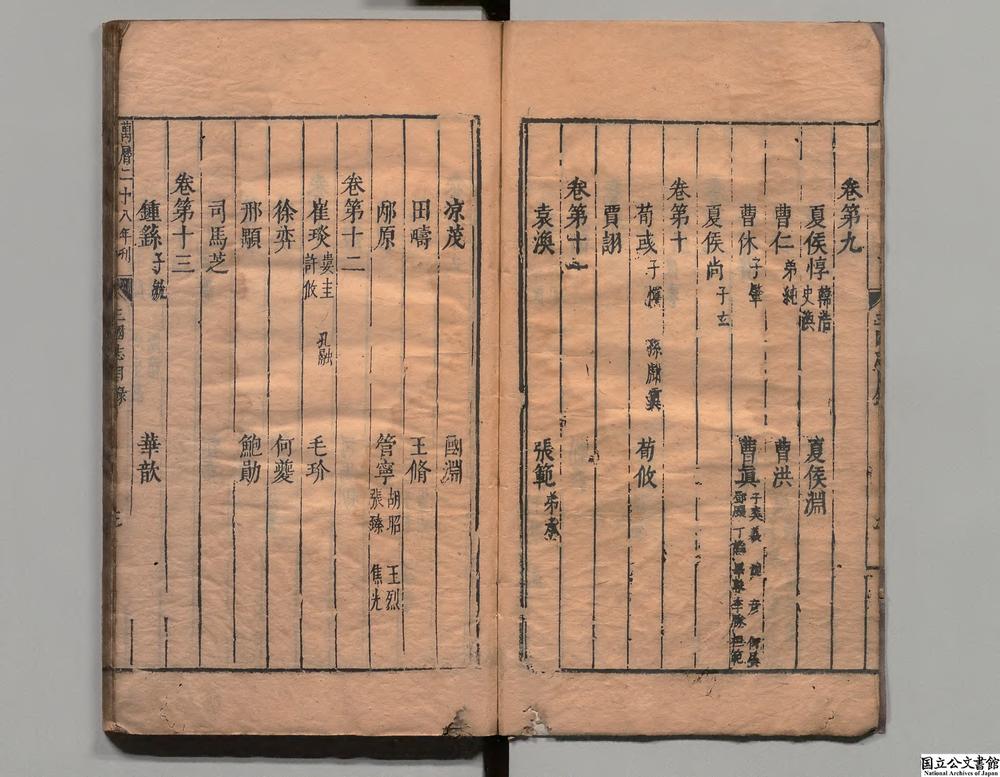 卷第九
夏侯惇 韓浩 史渙 夏侯淵
曹仁 弟純 曹洪
曹休 子肇 曹眞 子爽 羲 訓 彥 何晏 鄧颺 丁謐 畢軌 李勝 桓範
夏侯尚 子玄
卷第十
荀彧 子惲 孫甝 霬 荀攸
賈詡
卷第十一
袁渙 張範 弟承
凉茂 國淵
田疇 王脩
邴原 管寧 胡昭 王烈 張臻 焦光
卷第十二
崔琰 婁圭 許攸 孔融 毛玠
徐弈 何夔
邢顒 鮑勛
司馬芝
卷第十三
鍾繇 子毓 華歆
萬曆二十八年刊 三國志目錄
国立公文書館
National Archives of Japan